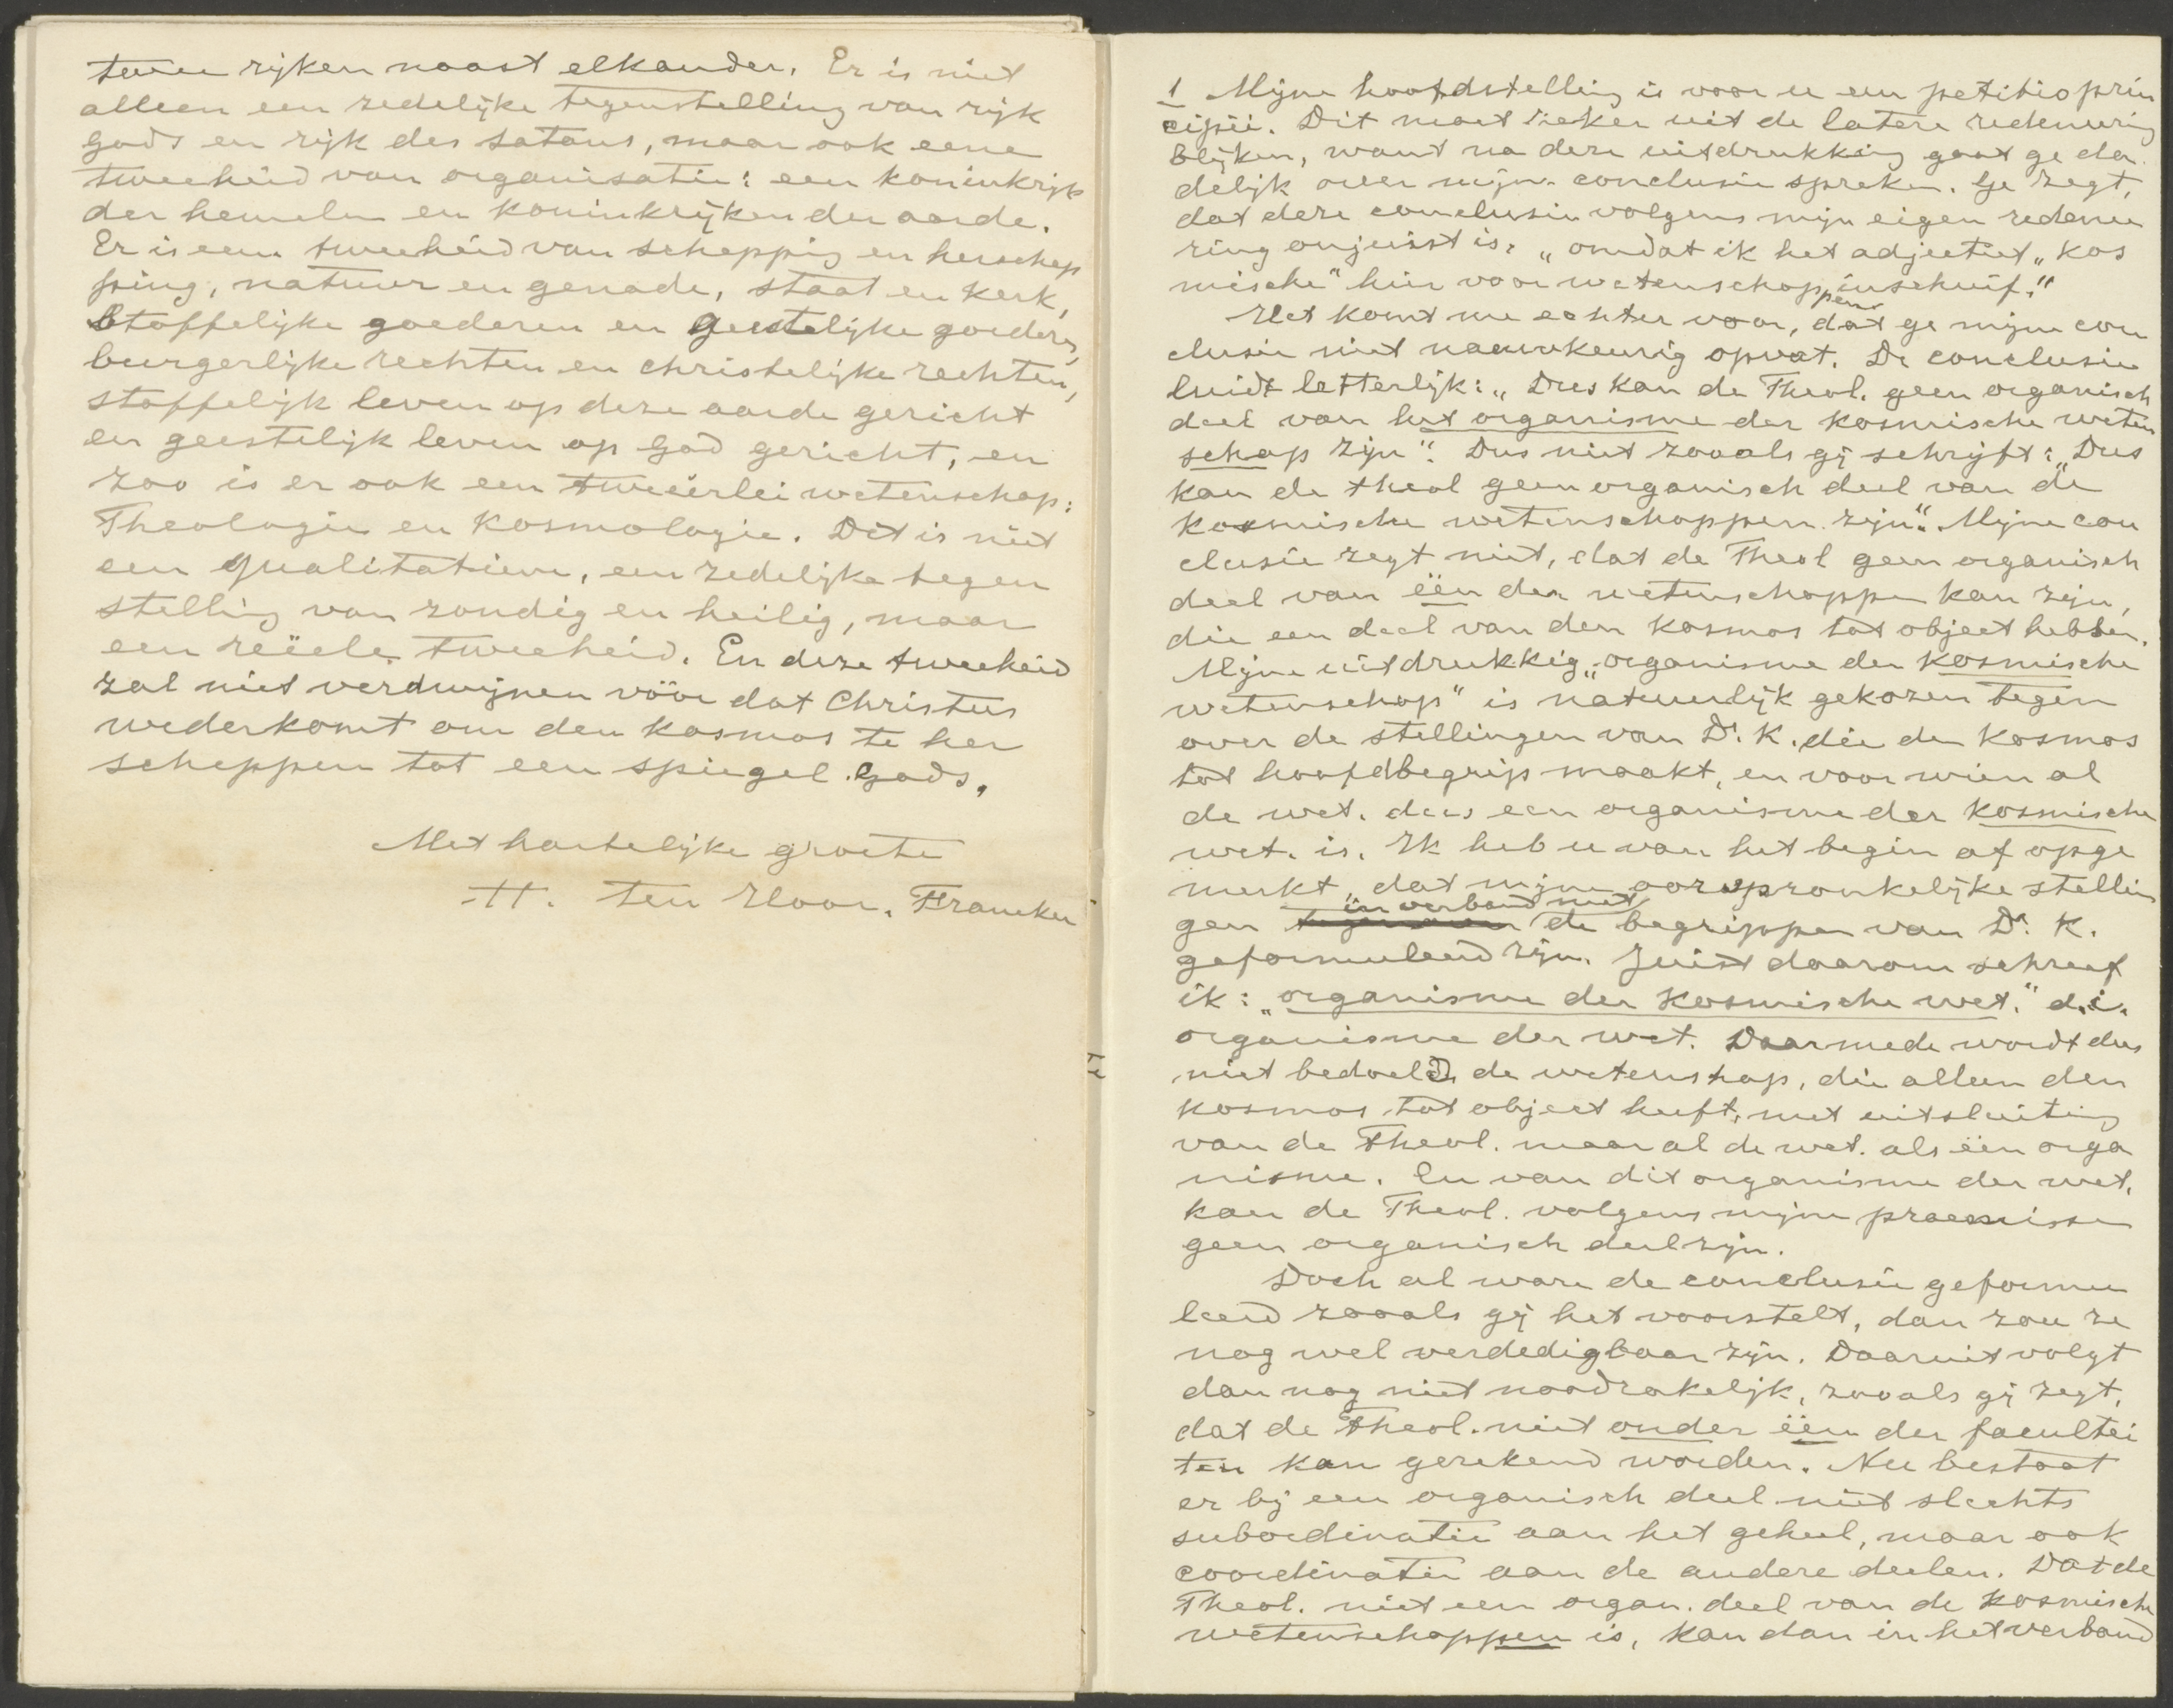 twee rijken naast elkander. Er is niet
alleen een zedelijke tegenstelling van rijk
gods en rijk des satans, maar ook eene
tweeheid van organisatie: een koninkrijk
der hemelen en koninkrijken der aarde.
Er is een tweeheid van schepping en herschep
ping, natuur en genade, staat en kerk,
stoffelijke goederen en geestelijke goederen,
burgerlijke rechten en christelijke rechten,
stoffelijk leven op deze aarde gericht
en geestelijk leven op God gericht, en
zoo is er ook een tweeërlei wetenschap:
Theologie en Kosmologie. Dit is niet
een qualitatieve, een zedelijke tegen
stelling van zondig en heilig, maar
een reëele tweeheid. En deze tweeheid
zal niet verdwijnen vóór dat Christus
wederkomt om den kosmos te her
scheppen tot een spiegel Gods.
Met hartelijke groete
H. ten Hoor. Franeker
1 Mijne hoofdstelling is voor u een petitio prin
cipii. Dit moet zeker uit de latere redeneering
blijken, want na deze uitdrukking gaat ge da
delijk over mijn conclusie spreken. Ge zegt,
dat deze conclusie volgens mijn eigen redenee
ring onjuist is, „omdat ik het adjectief „kos
mische" hier voor wetenschappen inschuif."
Het komt me echter voor, dat ge mijne con
clusie niet nauwkeurig opvat. De conclusie
luidt letterlijk: „Dus kan de Theol. geen organisch
deel van het organisme der kosmische weten
schap zijn". Dus niet zooals gij schrijft: „Dus
kan de theol geen organisch deel van de
kosmische wetenschappen zijn". Mijne con
clusie zegt niet, dat de Theol geen organisch
deel van één der wetenschappen kan zijn,
die een deel van den kosmos tot object hebben.
Mijne uitdrukkig „organisme der kosmische
wetenschap" is natuurlijk gekozen tegen
over de stellingen van Dr. K. die den kosmos
tot hoofdbegrip maakt, en voor wien al
de wet. dus een organisme der kosmische
wet. is. Ik heb u van het begin af opge
merkt, dat mijne oorspronkelijke stellin
gen in verband met de begrippen van Dr. K.
geformuleerd zijn. Juist daarom schreef
ik: „organisme der kosmische wet." d.i.
organisme der wet. Daarmede wordt dus
niet bedoeld de wetenshap, die alleen den
kosmos tot object heeft, met uitsluiting
van de Theol. maar al de wet. als één orga
nisme. En van dit organisme der wet.
kan de Theol. volgens mijne praemisse
geen organisch deel zijn.
Doch al ware de conclusie geformu
leerd zooals gij het voorstelt, dan zou ze
nog wel verdedigbaar zijn. Daaruit volgt
dan nog niet noodzakelijk, zooals gij zegt,
dat de Theol. niet onder één der facultei
ten kan gerekend worden. Nu bestaat
er bij een organisch deel niet slechts
subordinatie aan het geheel, maar ook
coordinatie aan de andere deelen. Dat de
Theol. niet een organ. deel van de kosmische
wetenschappen is, kan dan in het verband